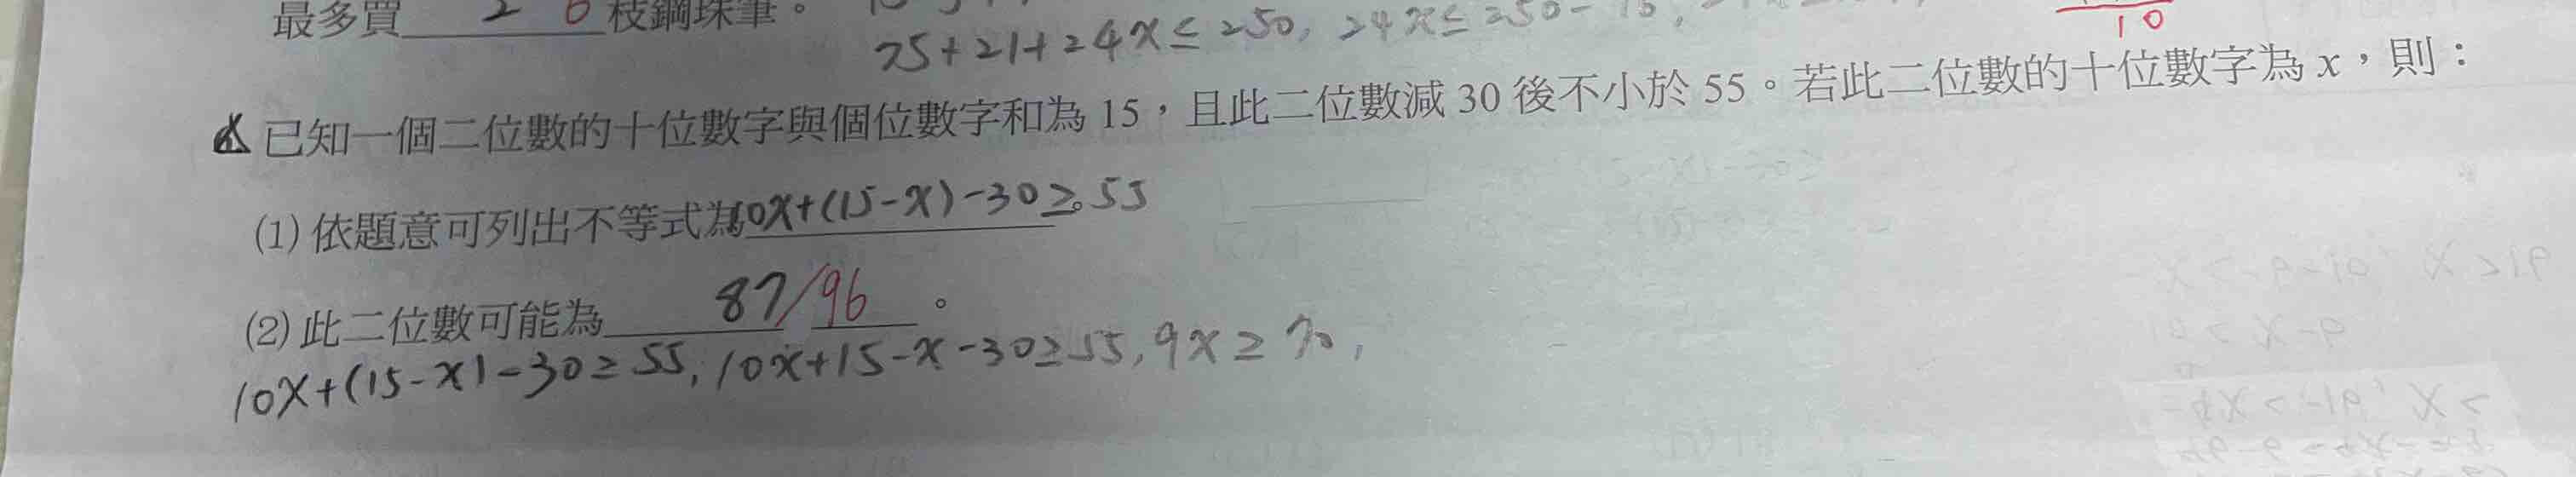 最多買 2 6 枝鋼珠筆。
75+21+24x≤250, 24x≤250-
10
已知一個二位數的十位數字與個位數字和為 15，且此二位數減 30 後不小於 55。若此二位數的十位數字為 x，則：
(1) 依題意可列出不等式為10x+(15-x)-30≥55。
(2) 此二位數可能為 87/96 。
10x+(15-x)-30≥55, 10x+15-x-30≥55, 9x≥70,